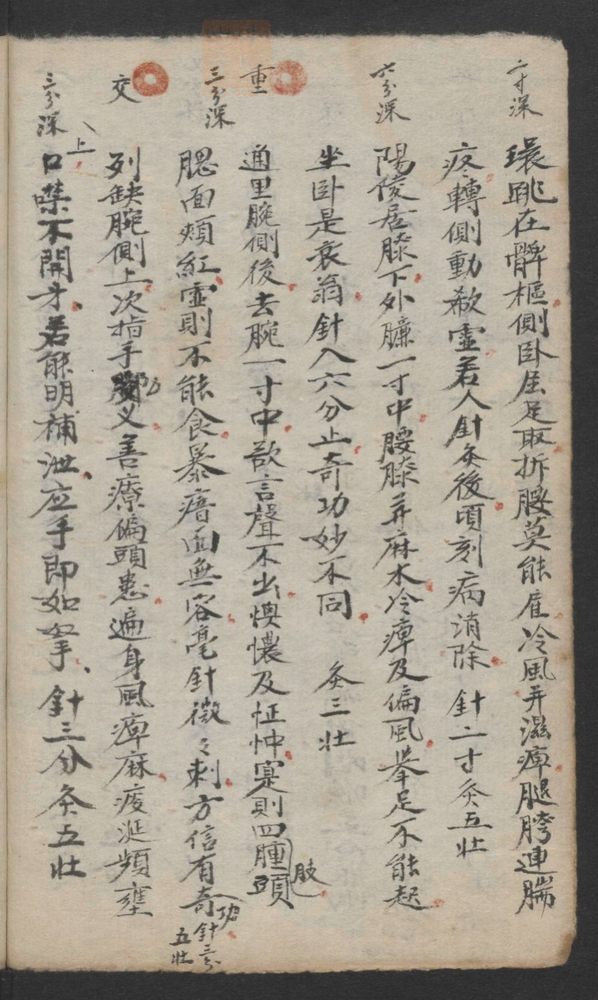 二寸深
環跳在髀樞側卧屈足取折腰莫能雇冷風并濕痺腿胯連腨
疼轉側動欷歔若人針灸後頃刻病消除 針二寸灸五壮
六分深
陽陵居膝下外臁一寸中腰膝并麻木冷痺及偏風举足不能起
坐卧是衰翁針入六分止奇功妙不同 灸三壮
重
通里腕側後去腕一寸中欲言聲不出懊憹及怔忡寔則四腫頭
肢
三分深
腮面頰紅虚則不能食暴瘖面無容毫針微々刺方信有奇功
針三分
五壮
交
列缺腕側上次指手义善療偏頭患遍身風痺麻痰涎頻壅
上
三分深
口噤不開牙若能明補泄应手即如拏針三分灸五壮